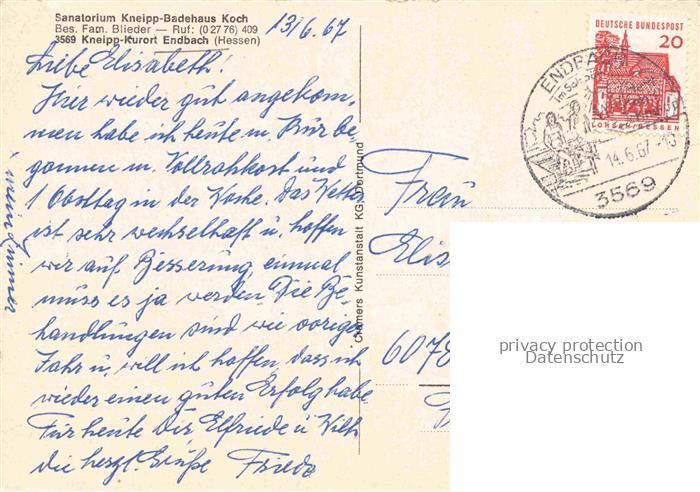 Sanatorium Kneipp-Badehaus Koch
Bes. Fam. Blieder — Ruf: (0 27 76) 409
3569 Kneipp-Kurort Endbach (Hessen)
13/6.67
Liebe Elisabeth!
Hier wieder gut angekom-
men habe ich heute m. Kur be-
gonnen m. Vollrohkost und
1 Obsttag in der Woche. Das Wetter
ist sehr wechselhaft u. hoffen
wir auf Besserung, einmal
muss es ja werden. Die Be-
handlungen sind wie voriges
Jahr u. will ich hoffen, dass ich
wieder einen guten Erfolg habe.
Für heute Dir, Elfriede u. Willi
die herzl. Grüße Frieda
x mein Zimmer
Cramers Kunstanstalt KG, Dortmund
DEUTSCHE BUNDESPOST
20
LORSCH/HESSEN
ENDBACH
14.6.67
3569
Frau
Elis
6078
privacy protection
Datenschutz